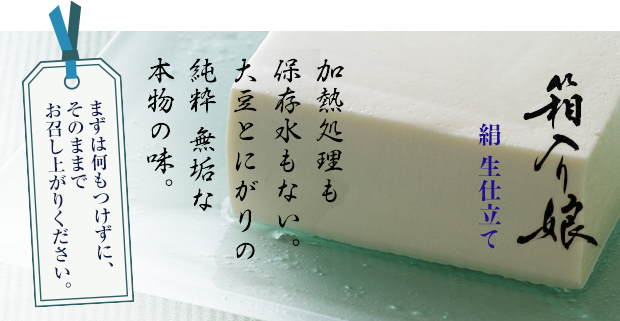 箱入り娘
絹 生仕立て
加熱処理も
保存水もない。
大豆とにがりの
純粋 無垢な
本物の味。
まずは何もつけずに、
そのままで
お召し上がりください。